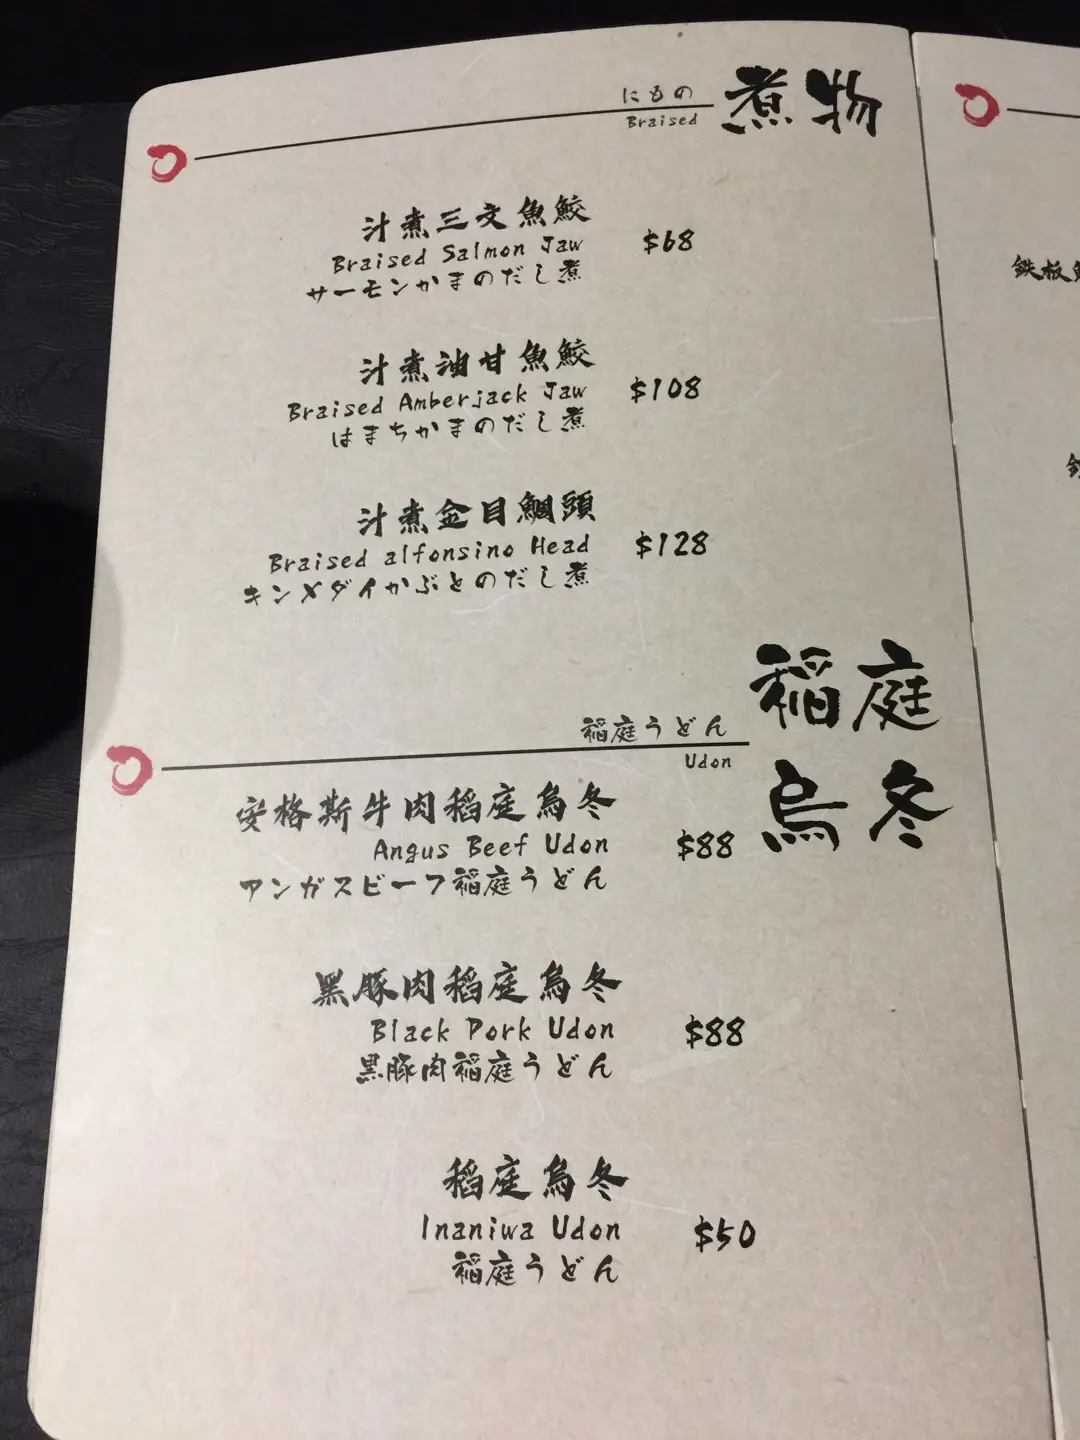 にもの
Braised
煮物
汁煮三文魚鮫
$68
Braised Salmon Jaw
サーモンかまのだし煮
汁煮油甘魚鮫
$108
Braised Amberjack Jaw
はまちかまのだし煮
汁煮金目鯛頭
$128
Braised alfonsino Head
キンメダイかぶとのだし煮
稲庭うどん
Udon
稲庭
烏冬
安格斯牛肉稻庭烏冬
$88
Angus Beef Udon
アンガスビーフ稲庭うどん
黑豚肉稻庭烏冬
$88
Black Pork Udon
黒豚肉稲庭うどん
稻庭烏冬
$50
Inaniwa Udon
稲庭うどん
鉄板